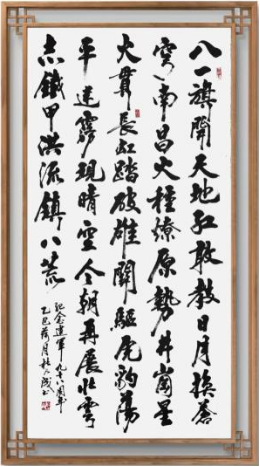 八一旗開天地紅敢教日月換蒼
穹南昌火種燎原勢井崗星
火貫長虹踏破雄關驅虎豹蕩
平迷霧現晴空今朝再展雲
志鐵甲洪流鎮八荒
紀念建軍九十八周年
乙巳荷月杜成書